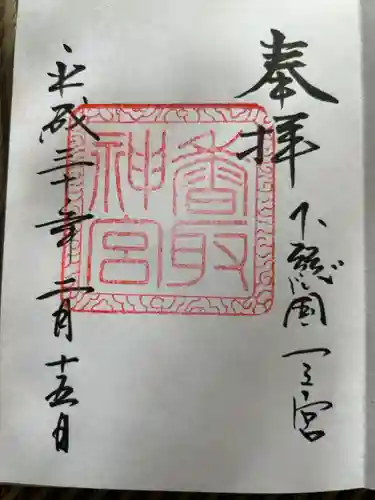 奉拝
下總國一之宮
香取
神宮
平成三十年二月十五日